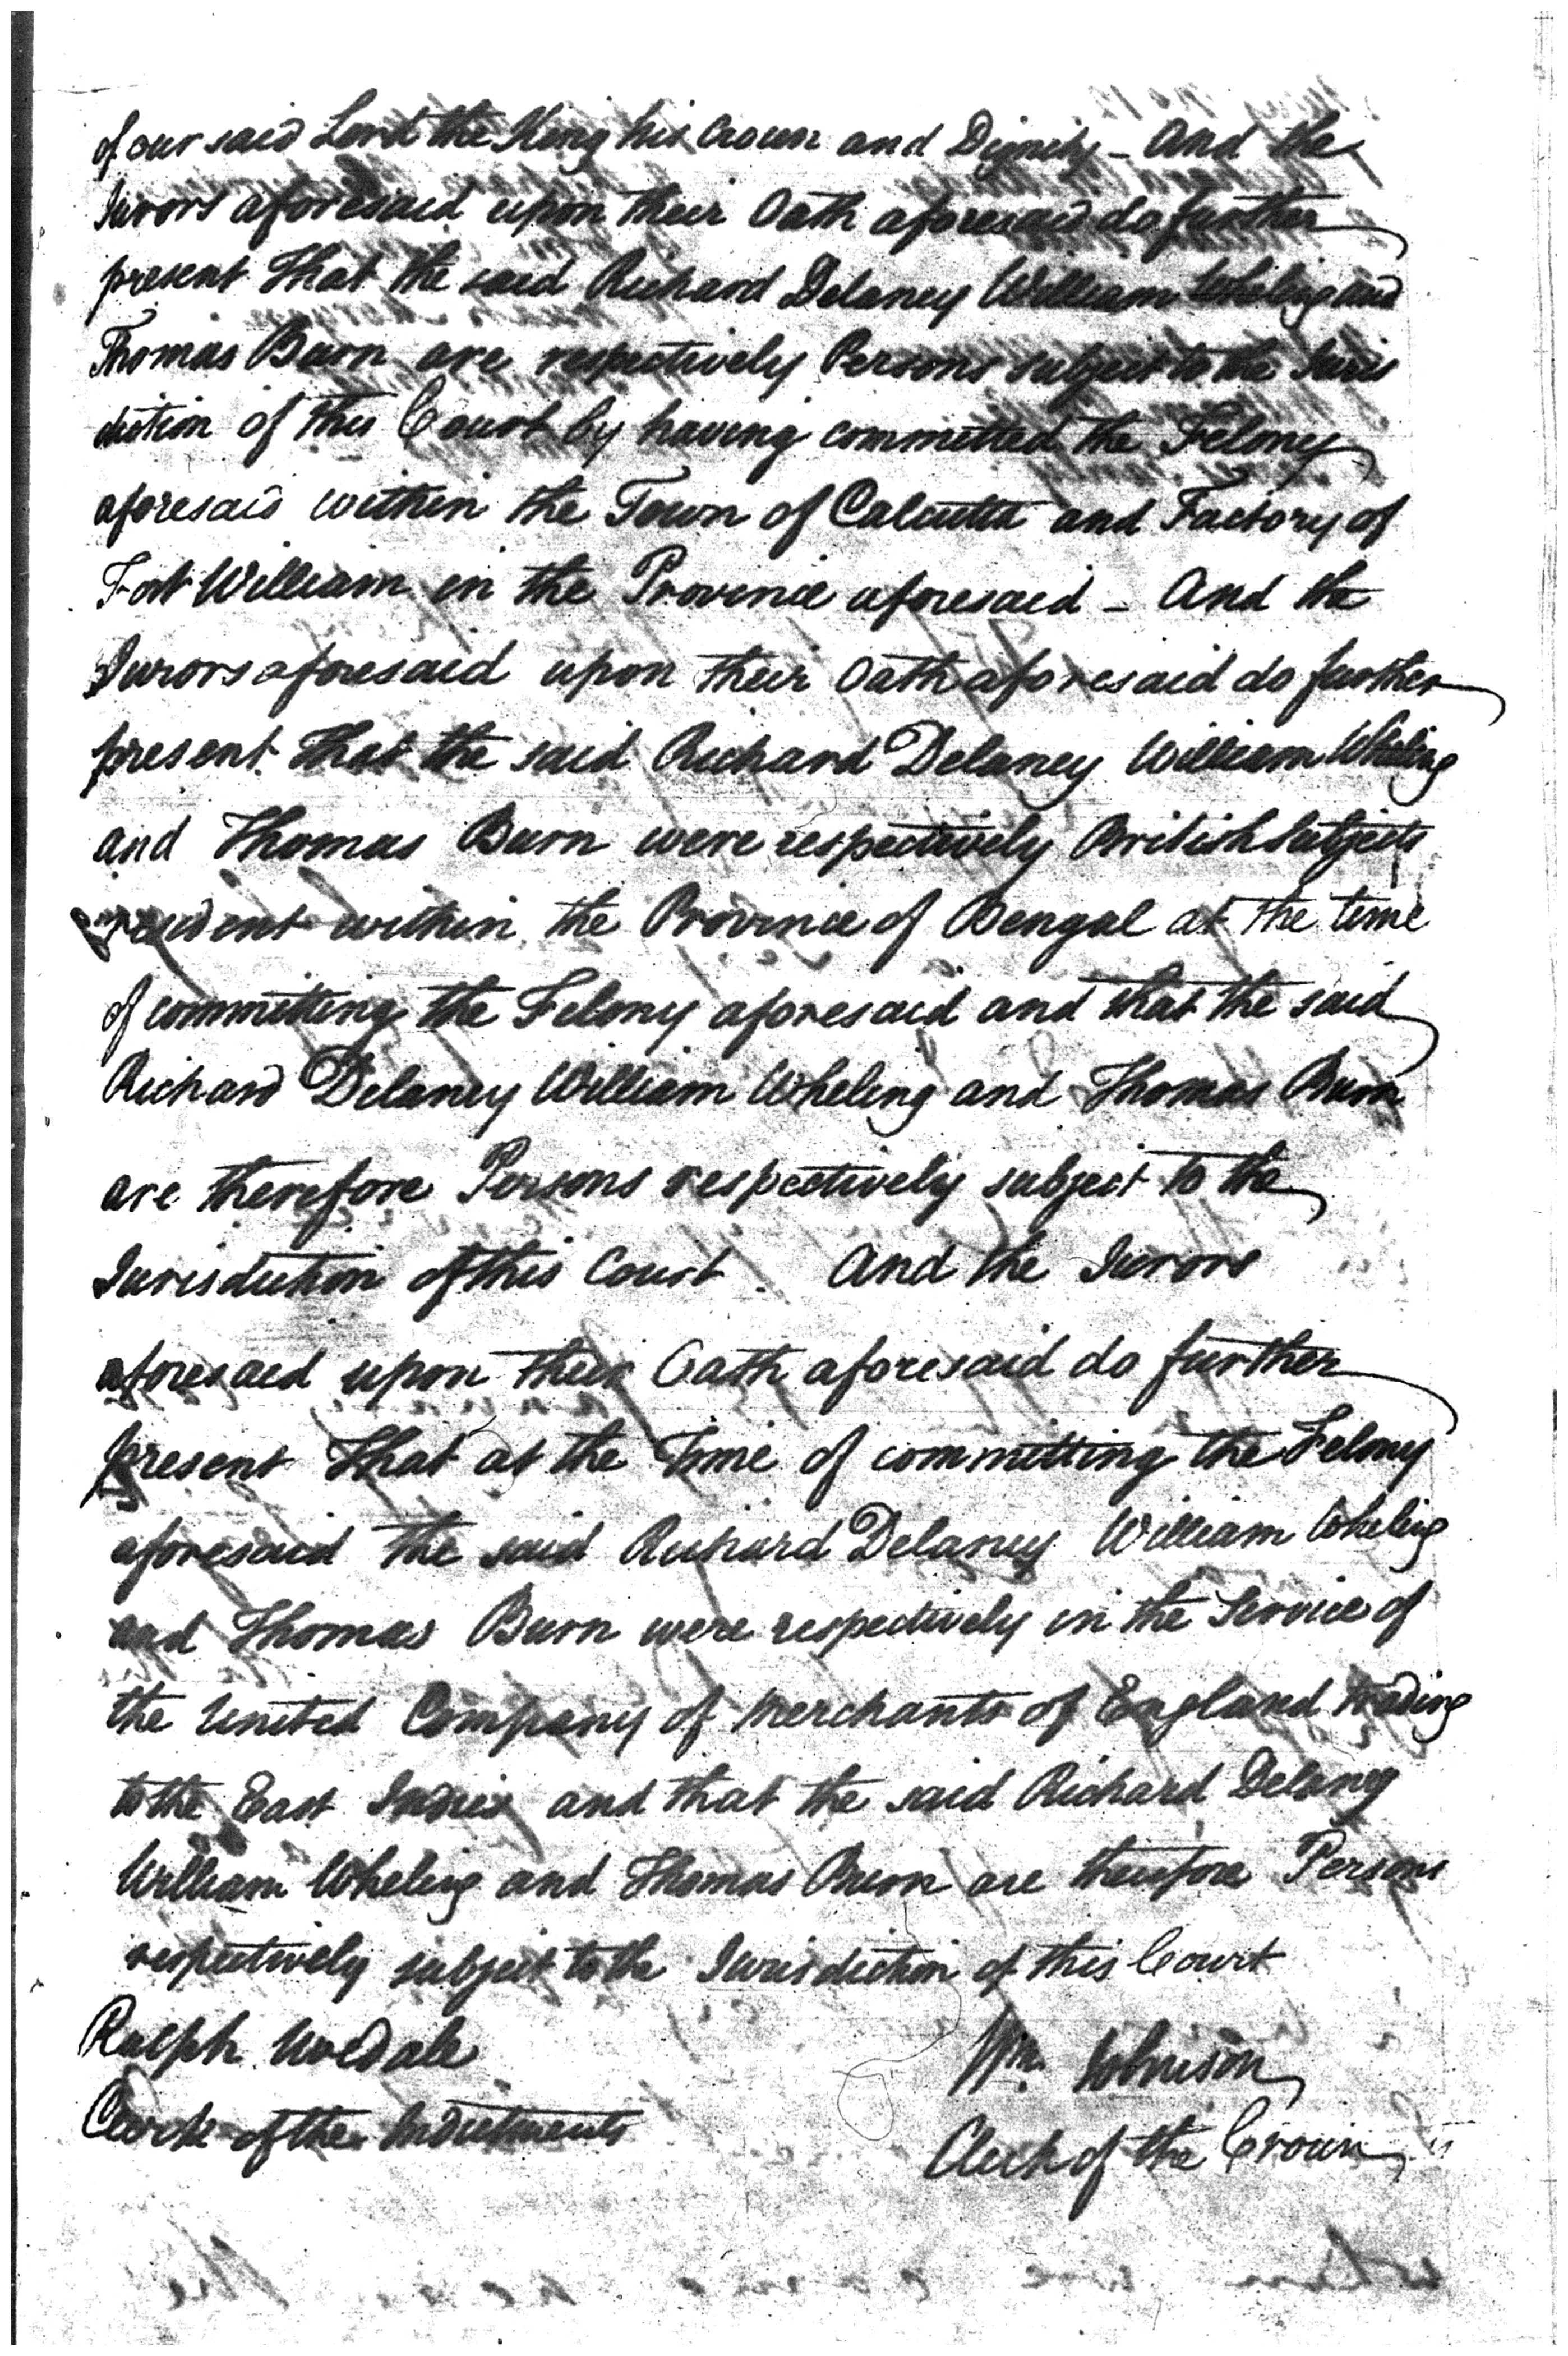 of our said Lord the King his Crown and Dignity - And the
Jurors aforesaid upon their Oath aforesaid do further
present That the said Richard Delaney William Wheling and
Thomas Burn are respectively Persons subject to the Juris
diction of this Court by having committed the Felony
aforesaid within the Town of Calcutta and Factory of
Fort William in the Province aforesaid - And the
Jurors aforesaid upon their Oath aforesaid do further
present That the said Richard Delaney William Wheling
and Thomas Burn were respectively British Subjects
resident within the Province of Bengal at the time
of committing the Felony aforesaid and that the said
Richard Delaney William Wheling and Thomas Burn
are therefore Persons respectively subject to the
Jurisdiction of this Court And the Jurors
aforesaid upon their Oath aforesaid do further
present That at the Time of committing the Felony
aforesaid the said Richard Delaney William Wheling
and Thomas Burn were respectively in the Service of
the United Company of Merchants of England trading
to the East Indies and that the said Richard Delaney
William Wheling and Thomas Burn are therefore Persons
respectively subject to the Jurisdiction of this Court
Ralph Uvedale
Clerk of the Indictments
Wm. Johnson
Clerk of the Crown